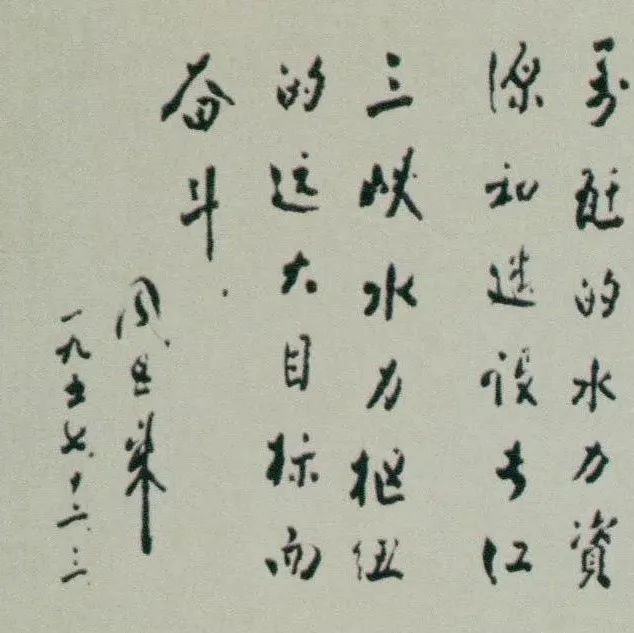 萬瓩的水力資
源和建设长江
三峡水力枢纽
的远大目标而
奋斗.
周恩来
一九五七.十二.三.